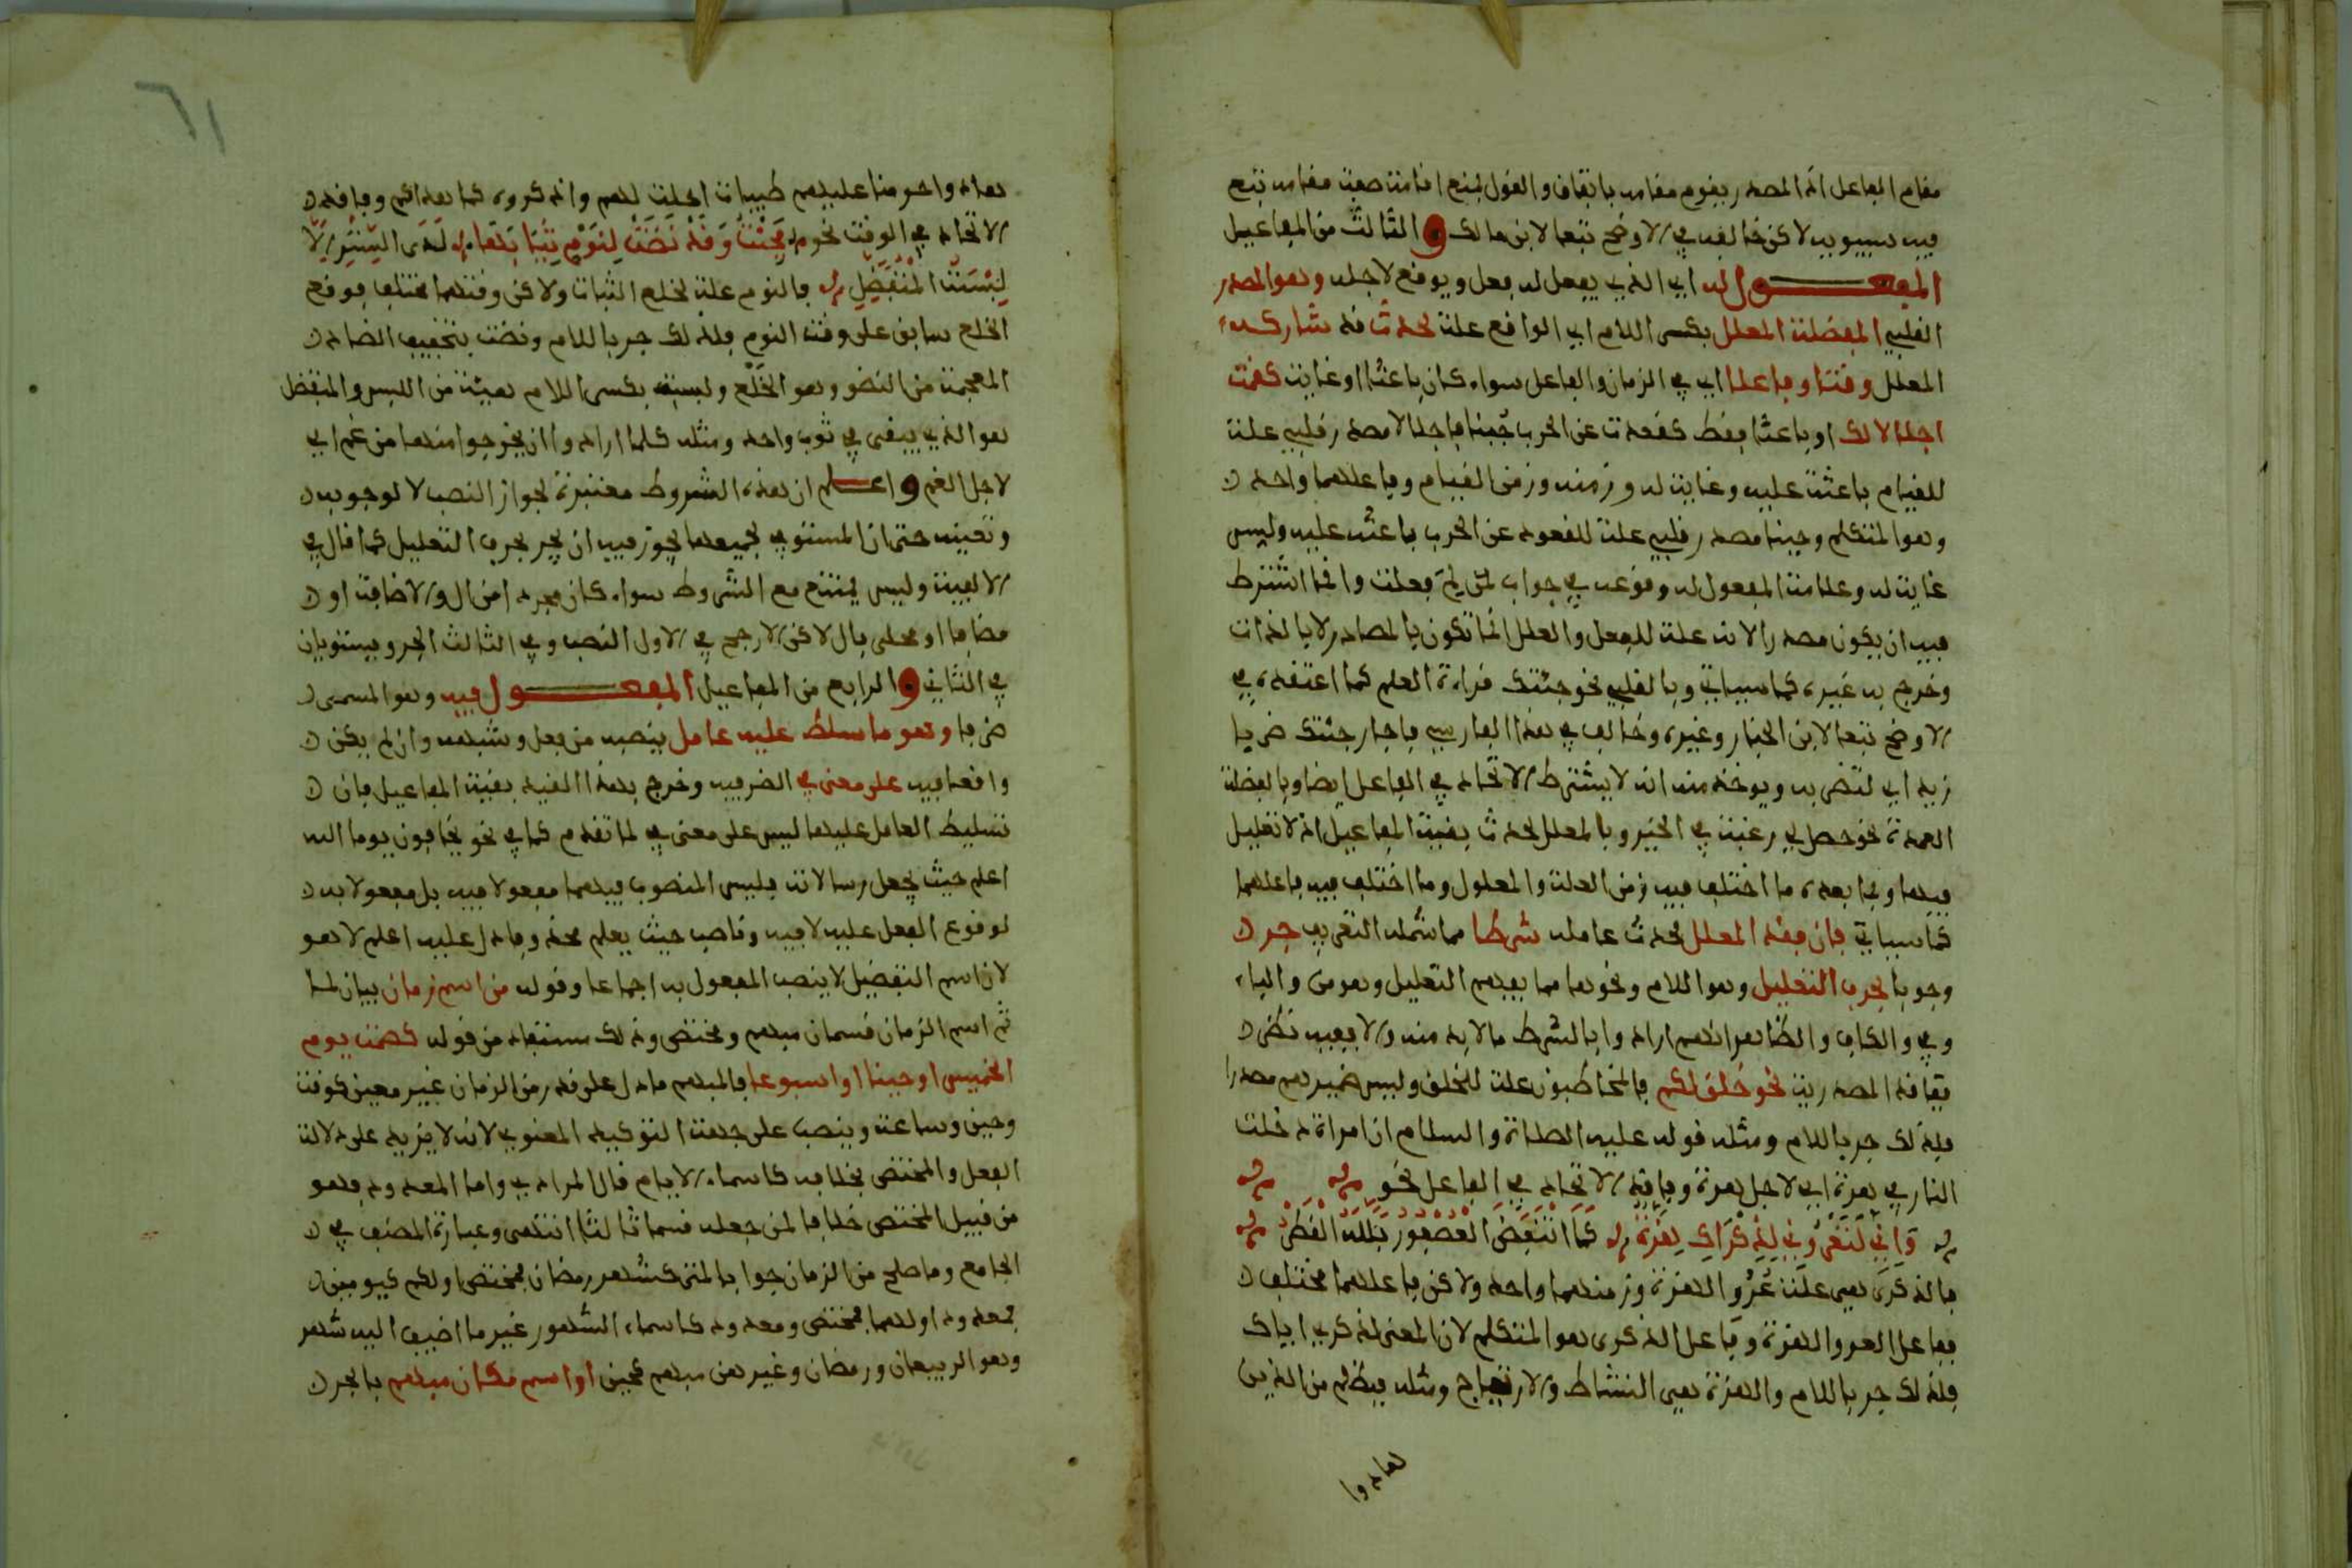 مقام الفاعل اذ المصدر يقوم مقامه باتفاق والقول بمنع اقامة صفته مقامه تبع
فيه سيبويه لاكن خالفه في الاوضح تبعا لابن مالك و الثالث من المفاعيل
المفعول له اي الذي يفعل له فعل ويوقع لاجله وهو المصدر
القلبي المفضلة المعلل بكسر اللام اي الواقع علة لحدث قد شاركه
المعلل وقتا وفاعلا اي في الزمان والفاعل سواء كان باعثا او غاية كقمت
اجلالا لك او باعثا فقط كقعدت عن الحرب جبنا فاجلالا مصدر قلبي علة
للقيام باعثة عليه وغاية له وزمنه وزمن القيام وفاعلهما واحد
وهو المتكلم وجبنا مصدر قلبي علة للقعود عن الحرب باعث عليه وليس
غاية له وعلامة المفعول له وقوعه في جواب لم فعلت وانما اشترط
فيه ان يكون مصدرا لانه علة للفعل والعلل انما تكون بالمصادر لا بالذات
وخرج به غيره كما سياتي وبالقلبي نحو جئتك قراءة العلم كما اعتقده في
الاوضح تبعا لابن الخباز وغيره وخالف في هذا الفارسي فاجاز جئتك ضرب
زيد اي لتضربه ويوخذ منه انه لا يشترط الاتحاد في الفاعل ايضا وبالفضلة
العمدة نحو حصل لي رغبة في الخير وبالمعلل لحدث بقية المفاعيل اذ لا تعليل
فيها وبما بعده ما اختلف فيه زمن العلة والمعلول وما اختلف فيه فاعلهما
كما سياتي فان فقد المعلل لحدث عامله شرطا مما شمله التعريف جر
وجوبا بحرف التعليل وهو اللام ونحوها مما يفهم التعليل وهو من والباء
وفي والكاف والظاهر انهم ارادوا بالشرط ما لا بد منه ولا يفيه نظر
ففاقد المصدرية نحو خلق لكم فالمخاطبون علة للخلق وليس ضميرهم مصدرا
فلذلك جر باللام ومثله قوله عليه الصلاة والسلام ان امراة دخلت
النار في هرة اي لاجل هرة وفاقد الاتحاد في الفاعل نحو
وَاِنِّي لَتَعْرُونِي لِذِكْرَاكِ هِزَّةٌ كَمَا انْتَفَضَ الْعُصْفُورُ بَلَّلَهُ الْقَطْرُ
فالذكرى هي علة عُرُوّ الهزة وزمنهما واحد ولاكن فاعلهما مختلف
ففاعل العرو الهزة وفاعل الذكرى هو المتكلم لان المعنى لذكري اياك
فلذلك جر باللام والهزة هي النشاط والارتياح ومثله فبظلم من الذين
هادوا
٦١
هادوا حرمنا عليهم طيبات احلت لهم واذكروه كما هداكم وفاقد
الاتحاد في الوقت نحو فَجِئْتُ وَقَدْ نَضَتْ لِنَوْمٍ ثِيَابَهَا لَدَى السِّتْرِ اِلَّا
لِبْسَةَ الْمُتَفَضِّلِ فالنوم علة لخلع الثياب ولاكن وقتهما مختلف فوقع
الخلع سابق على وقت النوم فلذلك جر باللام ونضت بتخفيف الضاد
المعجمة من النضو وهو الخلع ولبسة بكسر اللام هيئة من اللبس والمتفضل
هو الذي يبقى في ثوب واحد ومثله كلما ارادوا ان يخرجوا منها من غم اي
لاجل الغم و اعلم ان هذه الشروط معتبرة لجواز النصب لا لوجوبه
وتعينه حتى ان المستوفي لجميعها يجوز فيه ان يجر بحرف التعليل كما قال في
الالفية وليس يمتنع مع الشروط سواء كان مجردا من ال والاضافة او
مضافا او محلى بال لاكن الارجح في الاول النصب وفي الثالث الجر ويستويان
في الثاني و الرابع من المفاعيل المفعول فيه وهو المسمى
ظرفا وهو ما سلط عليه عامل ينصبه من فعل وشبهه وان لم يكن
واقعا فيه على معنى في الظرفية وخرج بهذا القيد بقية المفاعيل فان
تسليط العامل عليها ليس على معنى في لما تقدم كما في نحو يخافون يوما الله
اعلم حيث يجعل رسالاته فليس المنصوب فيهما مفعولا فيه بل مفعولا به
لوقوع الفعل عليه لا فيه وناصب حيث يعلم محذوفا دل عليه اعلم لا هو
لان اسم التفضيل لا ينصب المفعول به اجماعا وقوله من اسم زمان بيان لما
ثم اسم الزمان قسمان مبهم ومختص وذلك مستفاد من قوله كصمت يوم
الخميس او حينا او اسبوعا فالمبهم ما دل على قدر من الزمان غير معين كوقت
وحين وساعة وينصب على جهة التوكيد المعنوي لانه لا يزيد على دلالة
الفعل والمختص بخلافه كاسماء الايام قال المرادي واما المعدود فهو
من قبيل المختص خلافا لمن جعله قسما ثالثا انتهى وعبارة المصنف في
الجامع وما صلح من الزمان جوابا لمتى كشهر رمضان فمختص او لكم كيومين
فمعدود او لهما فمختص ومعدود كاسماء الشهور غير ما اضيف اليه شهر
وهو الربيعان ورمضان وغيرهن مبهم كحين او اسم مكان مبهم بالجر